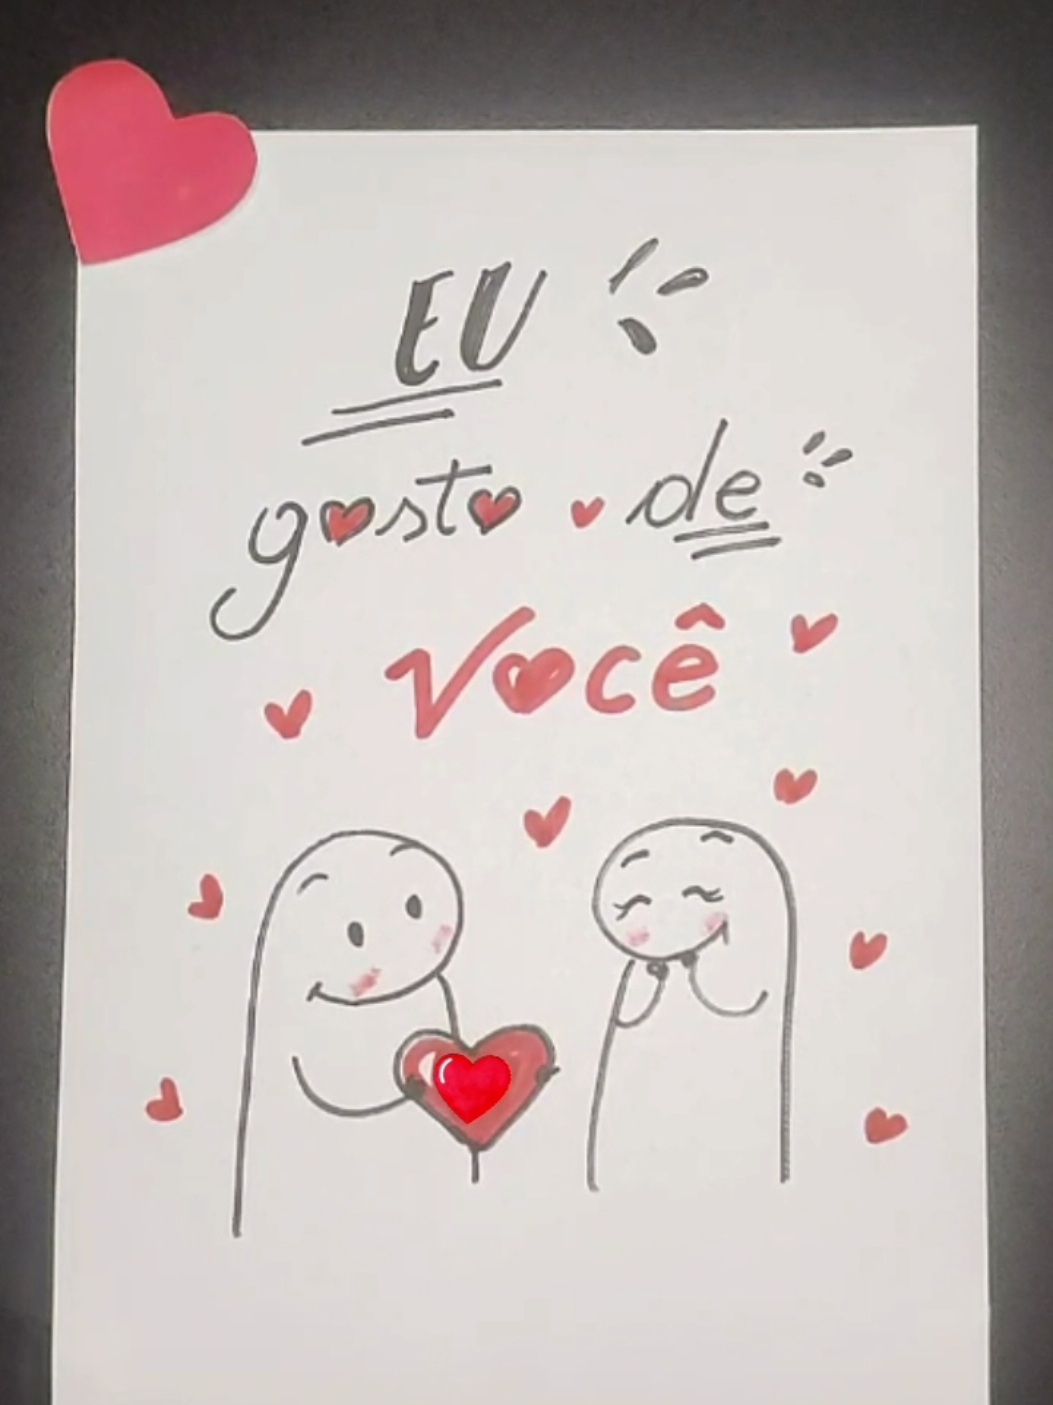 EU
gosto de
Você